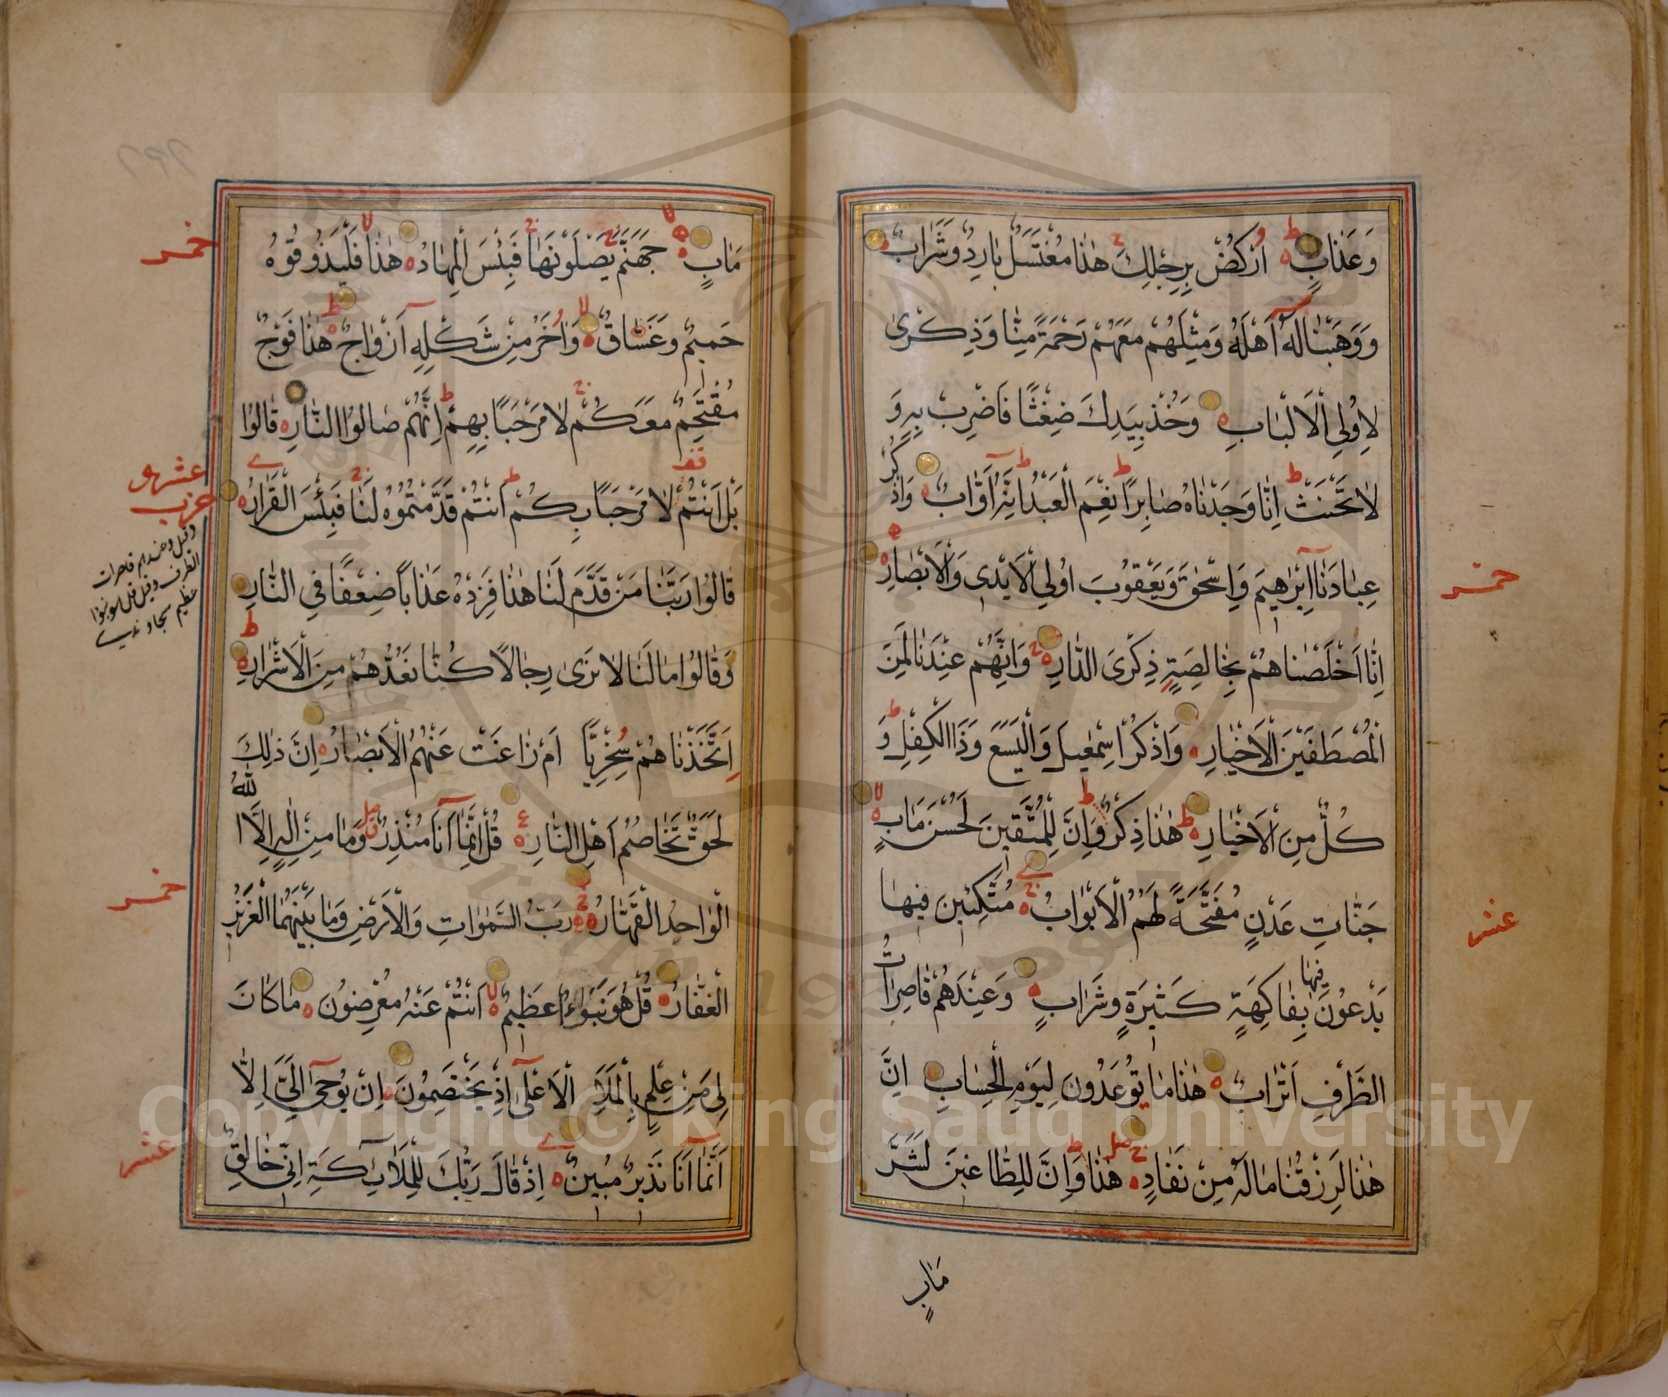 وَعَذَابٍ اُرْكُضْ بِرِجْلِكَ هٰذَا مُغْتَسَلٌ بَارِدٌ وَشَرَابٌ
وَوَهَبْنَا لَهُ اَهْلَهُ وَمِثْلَهُمْ مَعَهُمْ رَحْمَةً مِنَّا وَذِكْرٰى
لِاُولِى الْاَلْبَابِ وَخُذْ بِيَدِكَ ضِغْثًا فَاضْرِبْ بِهِ وَ
لَا تَحْنَثْ اِنَّا وَجَدْنَاهُ صَابِرًا نِعْمَ الْعَبْدُ اِنَّهُ اَوَّابٌ وَاذْكُرْ
عِبَادَنَا اِبْرٰهِيمَ وَاِسْحٰقَ وَيَعْقُوبَ اُولِى الْاَيْدِى وَالْاَبْصَارِ
خمس
اِنَّا اَخْلَصْنَاهُمْ بِخَالِصَةٍ ذِكْرَى الدَّارِ وَاِنَّهُمْ عِنْدَنَا لَمِنَ
الْمُصْطَفَيْنَ الْاَخْيَارِ وَاذْكُرْ اِسْمٰعِيلَ وَالْيَسَعَ وَذَا الْكِفْلِ وَ
كُلٌّ مِنَ الْاَخْيَارِ هٰذَا ذِكْرٌ وَاِنَّ لِلْمُتَّقِينَ لَحُسْنَ مَاٰبٍ
جَنَّاتِ عَدْنٍ مُفَتَّحَةً لَهُمُ الْاَبْوَابُ مُتَّكِئِينَ فِيهَا
عشر
يَدْعُونَ فِيهَا بِفَاكِهَةٍ كَثِيرَةٍ وَشَرَابٍ وَعِنْدَهُمْ قَاصِرَاتُ
الطَّرْفِ اَتْرَابٌ هٰذَا مَا تُوعَدُونَ لِيَوْمِ الْحِسَابِ اِنَّ
هٰذَا لَرِزْقُنَا مَا لَهُ مِنْ نَفَادٍ هٰذَا وَاِنَّ لِلطَّاغِينَ لَشَرَّ
مَاٰبٍ
مَاٰبٍ جَهَنَّمَ يَصْلَوْنَهَا فَبِئْسَ الْمِهَادُ هٰذَا فَلْيَذُوقُوهُ
خمس
حَمِيمٌ وَغَسَّاقٌ وَاٰخَرُ مِنْ شَكْلِهِ اَزْوَاجٌ هٰذَا فَوْجٌ
مُقْتَحِمٌ مَعَكُمْ لَا مَرْحَبًا بِهِمْ اِنَّهُمْ صَالُوا النَّارِ قَالُوا
بَلْ اَنْتُمْ لَا مَرْحَبًا بِكُمْ اَنْتُمْ قَدَّمْتُمُوهُ لَنَا فَبِئْسَ الْقَرَارُ
عشر
حزب
قَالُوا رَبَّنَا مَنْ قَدَّمَ لَنَا هٰذَا فَزِدْهُ عَذَابًا ضِعْفًا فِى النَّارِ
وَقَالُوا مَا لَنَا لَا نَرٰى رِجَالًا كُنَّا نَعُدُّهُمْ مِنَ الْاَشْرَارِ
اَتَّخَذْنَاهُمْ سُخْرِيًّا اَمْ زَاغَتْ عَنْهُمُ الْاَبْصَارُ اِنَّ ذٰلِكَ
لَحَقٌّ تَخَاصُمُ اَهْلِ النَّارِ قُلْ اِنَّمَا اَنَا مُنْذِرٌ وَمَا مِنْ اِلٰهٍ اِلَّا اللّٰهُ
الْوَاحِدُ الْقَهَّارُ رَبُّ السَّمٰوَاتِ وَالْاَرْضِ وَمَا بَيْنَهُمَا الْعَزِيزُ
خمس
الْغَفَّارُ قُلْ هُوَ نَبَؤٌا عَظِيمٌ اَنْتُمْ عَنْهُ مُعْرِضُونَ مَا كَانَ
لِىَ مِنْ عِلْمٍ بِالْمَلَاِ الْاَعْلٰى اِذْ يَخْتَصِمُونَ اِنْ يُوحٰى اِلَىَّ اِلَّا
اَنَّمَا اَنَا نَذِيرٌ مُبِينٌ اِذْ قَالَ رَبُّكَ لِلْمَلٰٓئِكَةِ اِنِّى خَالِقٌ
عشر
Copyright © King Saud University